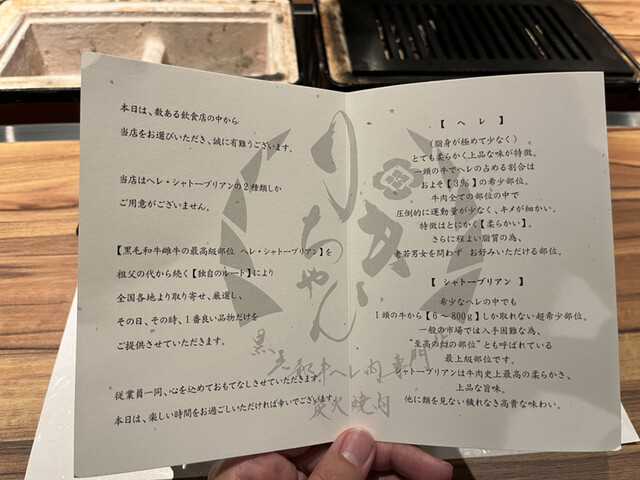 本日は、数ある飲食店の中から
当店をお選びいただき、誠に有難うございます。
当店はヘレ・シャトーブリアンの2種類しか
ご用意がございません。
【黒毛和牛雌牛の最高級部位 ヘレ・シャトーブリアン】を
祖父の代から続く【独自のルート】により
全国各地より取り寄せ、厳選し、
その日、その時、1番良い品物だけを
ご提供させていただきます。
従業員一同、心を込めておもてなしさせていただきます。
本日は、楽しい時間をお過ごしいただければ幸いでございます。
【 ヘレ 】
(脂身が極めて少なく)
とても柔らかく上品な味が特徴。
一頭の牛でヘレの占める割合は
およそ【3%】の希少部位。
牛肉全ての部位の中で
圧倒的に運動量が少なく、キメが細かい。
特徴はとにかく【柔らかい】。
さらに程よい脂質の為、
老若男女を問わず お好みいただける部位。
【 シャトーブリアン 】
希少なヘレの中でも
1頭の牛から【6～800g】しか取れない超希少部位。
一般の市場では入手困難な為、
"至高の幻の部位"とも呼ばれている
最上級部位です。
シャトーブリアンは牛肉史上最高の柔らかさ、
上品な旨味。
他に類を見ない穢れなき高貴な味わい。
りちゃん
黒毛和牛ヘレ肉専門店
炭火焼肉